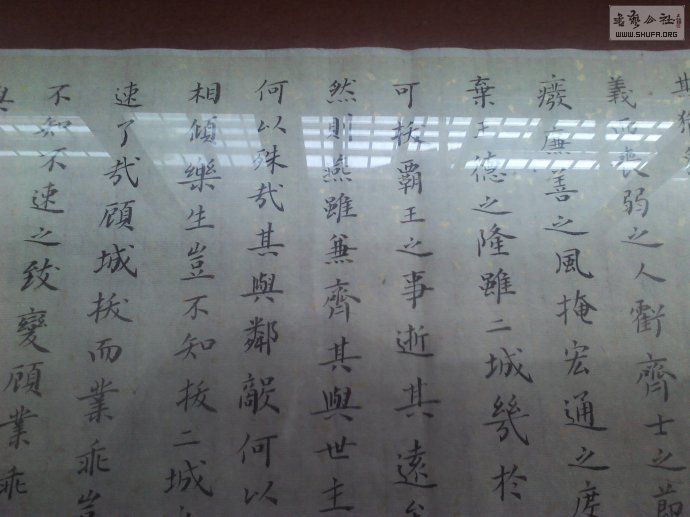 其猶
義而喪弱之人虧齊士之節
廢廉善之風掩宏通之度
棄王德之隆雖二城幾於
可拔霸王之事逝其遠
然則燕雖兼齊其與世主
何以殊哉其與鄰敵何以
相傾樂生豈不知拔二城
速了哉顧城拔而業乖豈
不知不速之致變顧業乖
與
书艺公社
WWW.SHUFA.ORG